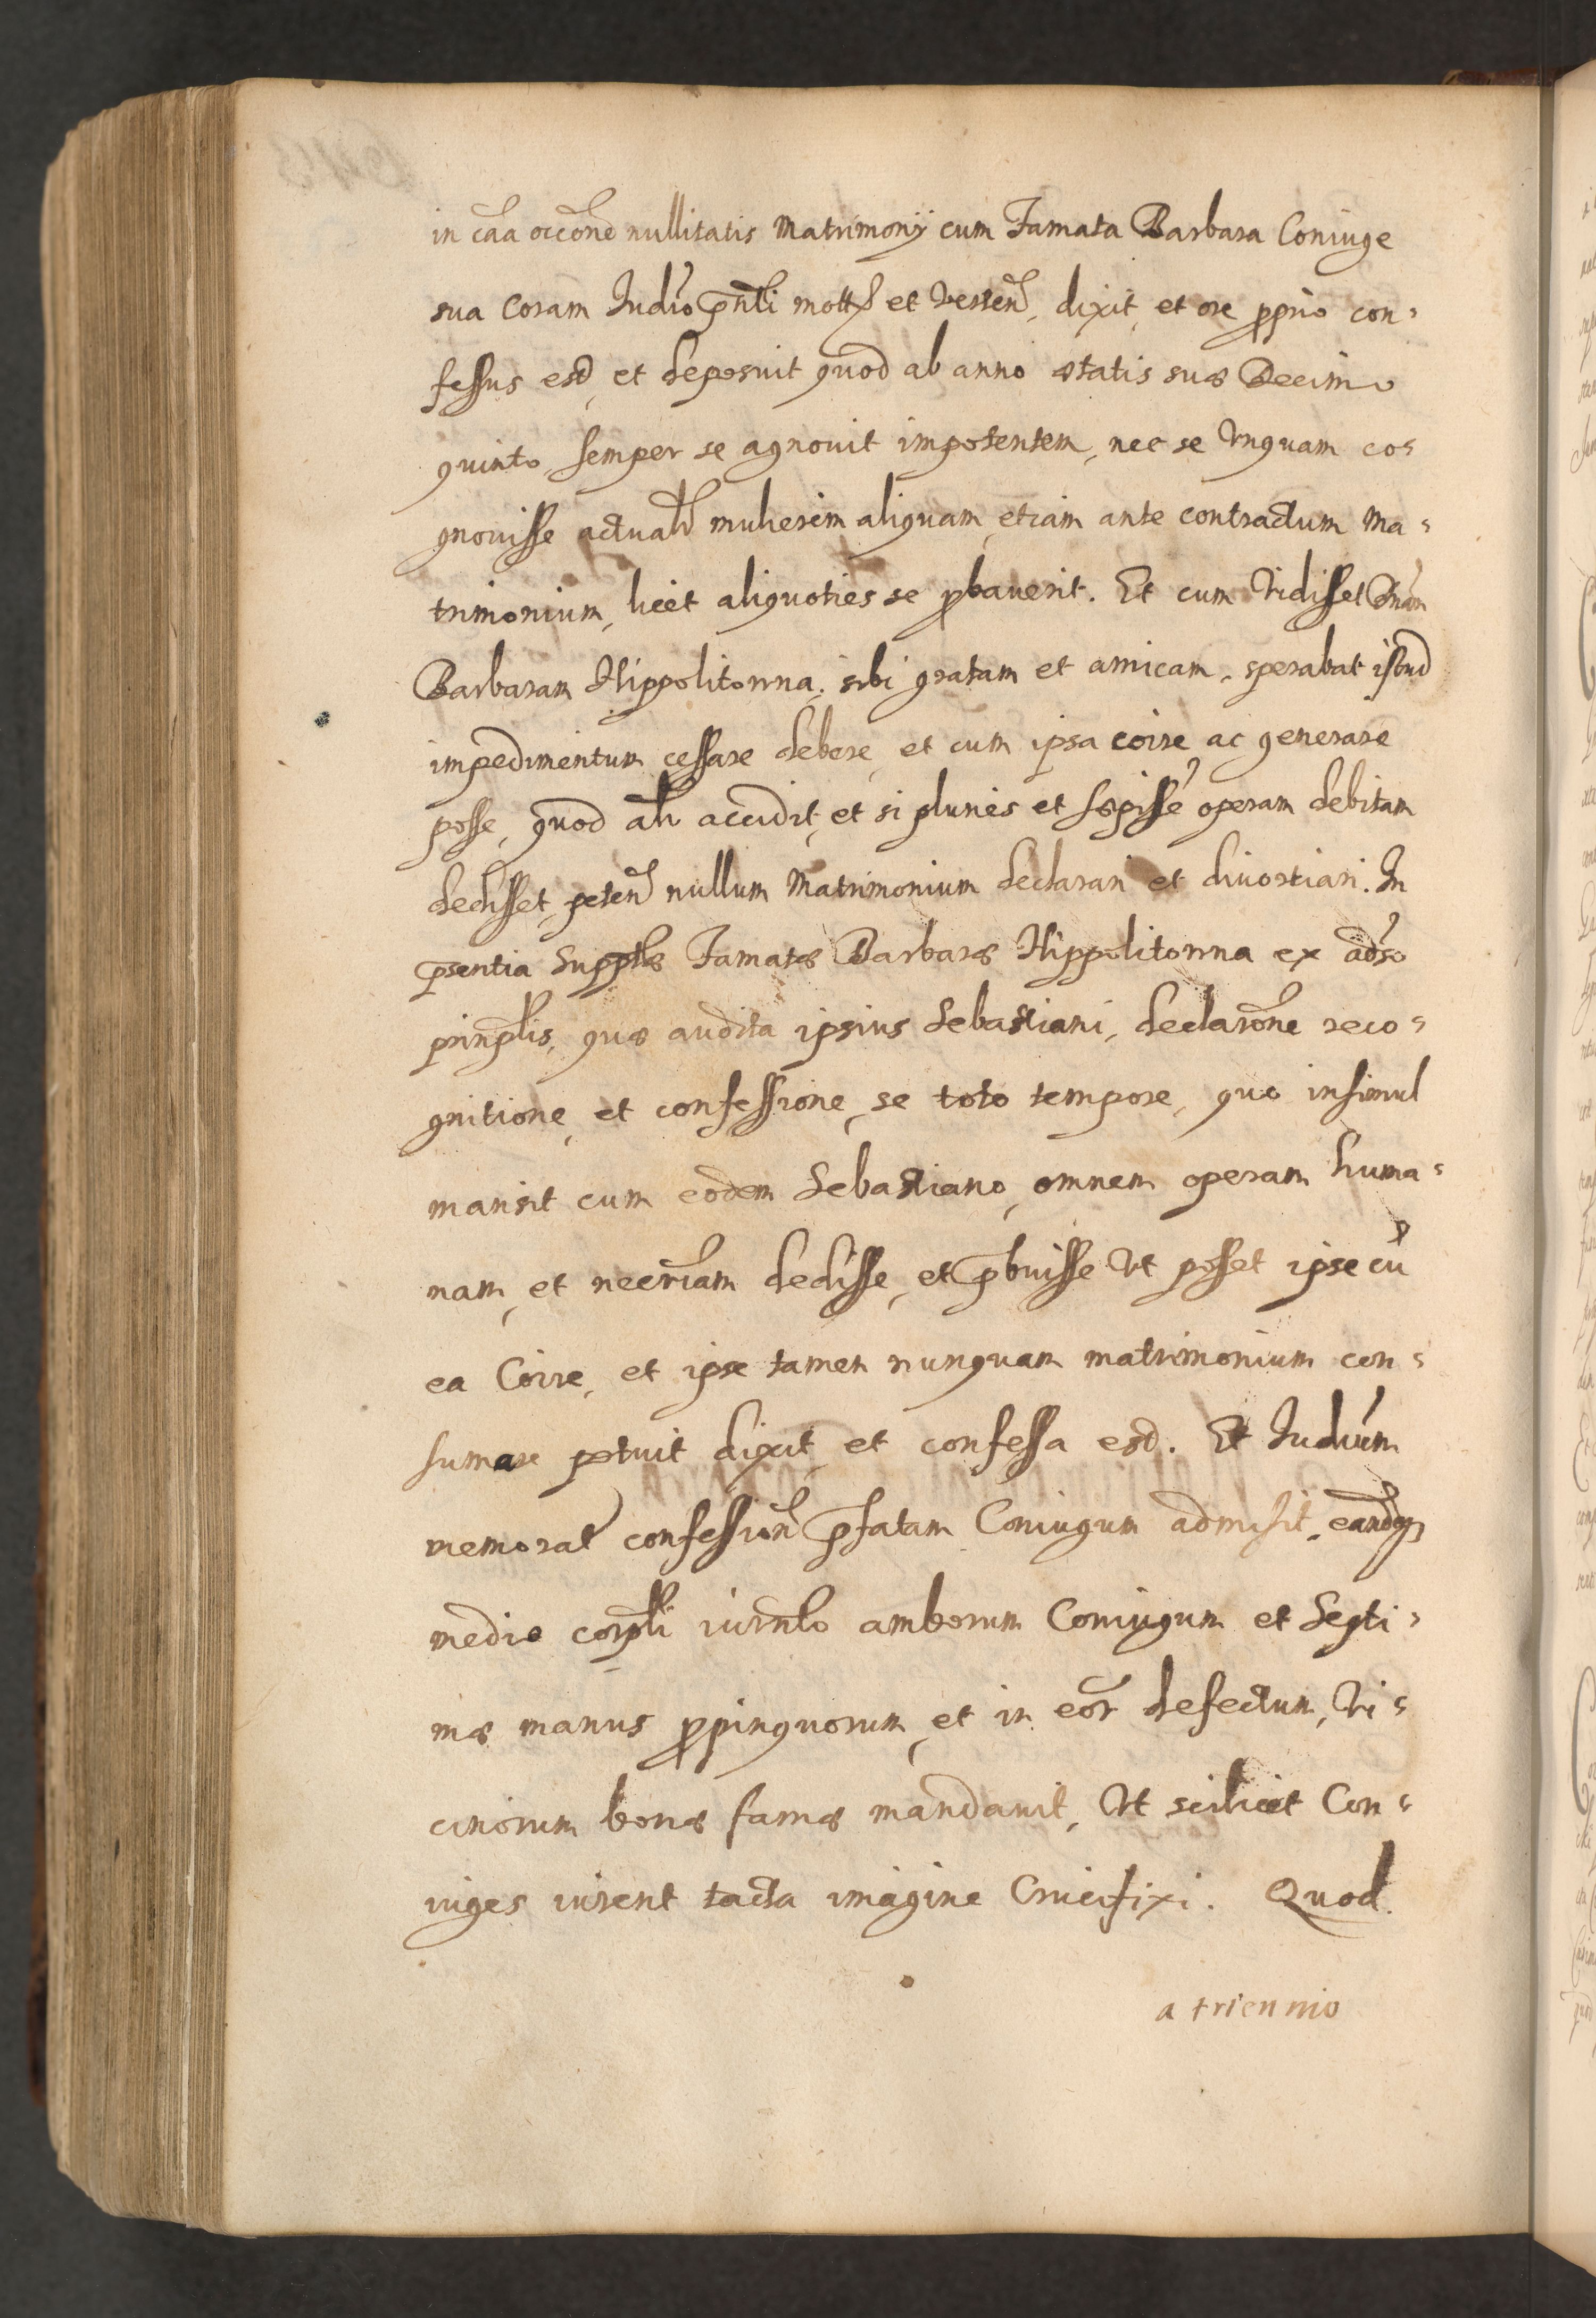 in cãa occõne nullitatis Matrimonÿ cum Famata Barbara Coniuge
sua coram Indio pñti mott et verten, dixit, et ore pprio con-
fessus est, et deposuit quod ab anno ætatis suæ Decimo
quinto, semper se agnouit impotentem, nec se vnquam co-
gnouisse actuali mulierem aliquam, etiam ante contractum Ma-
trimonium, licet aliquoties se pbauerit. Et cum vidisset Dnam
Barbaram Hippolitowna, sibi gratam et amicam, sperabat istud
impedimentum cessare debere, et cum ipsa coire ac generare
posse, quod ah accidit, et si pluries et sæpissè operam debitam
dedisset, peten nullum Matrimonium declarari et diuortiari. In
psentia Supplis Famatæ Barbaræ Hippolitowna ex adso
prinplis, quæ audita ipsius Sebastiani, declarõne reco-
gnitione, et confessione, se toto tempore, quo insimul
mansit cum eodem Sebastiano, omnem operam huma-
nam, et necriam dedisse, et pbuisse vt posset ipse cũ
ea Coire, et ipse tamen nunquam matrimonium con-
sumare potuit dixit, et confessa est. Et Iudium
memorat confession pfatam Coniugum admisit, eandq
medio corpli iurnto amborum Coniugum et Septi-
mæ manus ppinquorum, et in eor defectum, vi-
cinorum bonæ famæ mandauit, vt scilicet Con-
iuges iurent tacta imagine Crucifixi. Quod
a triennio